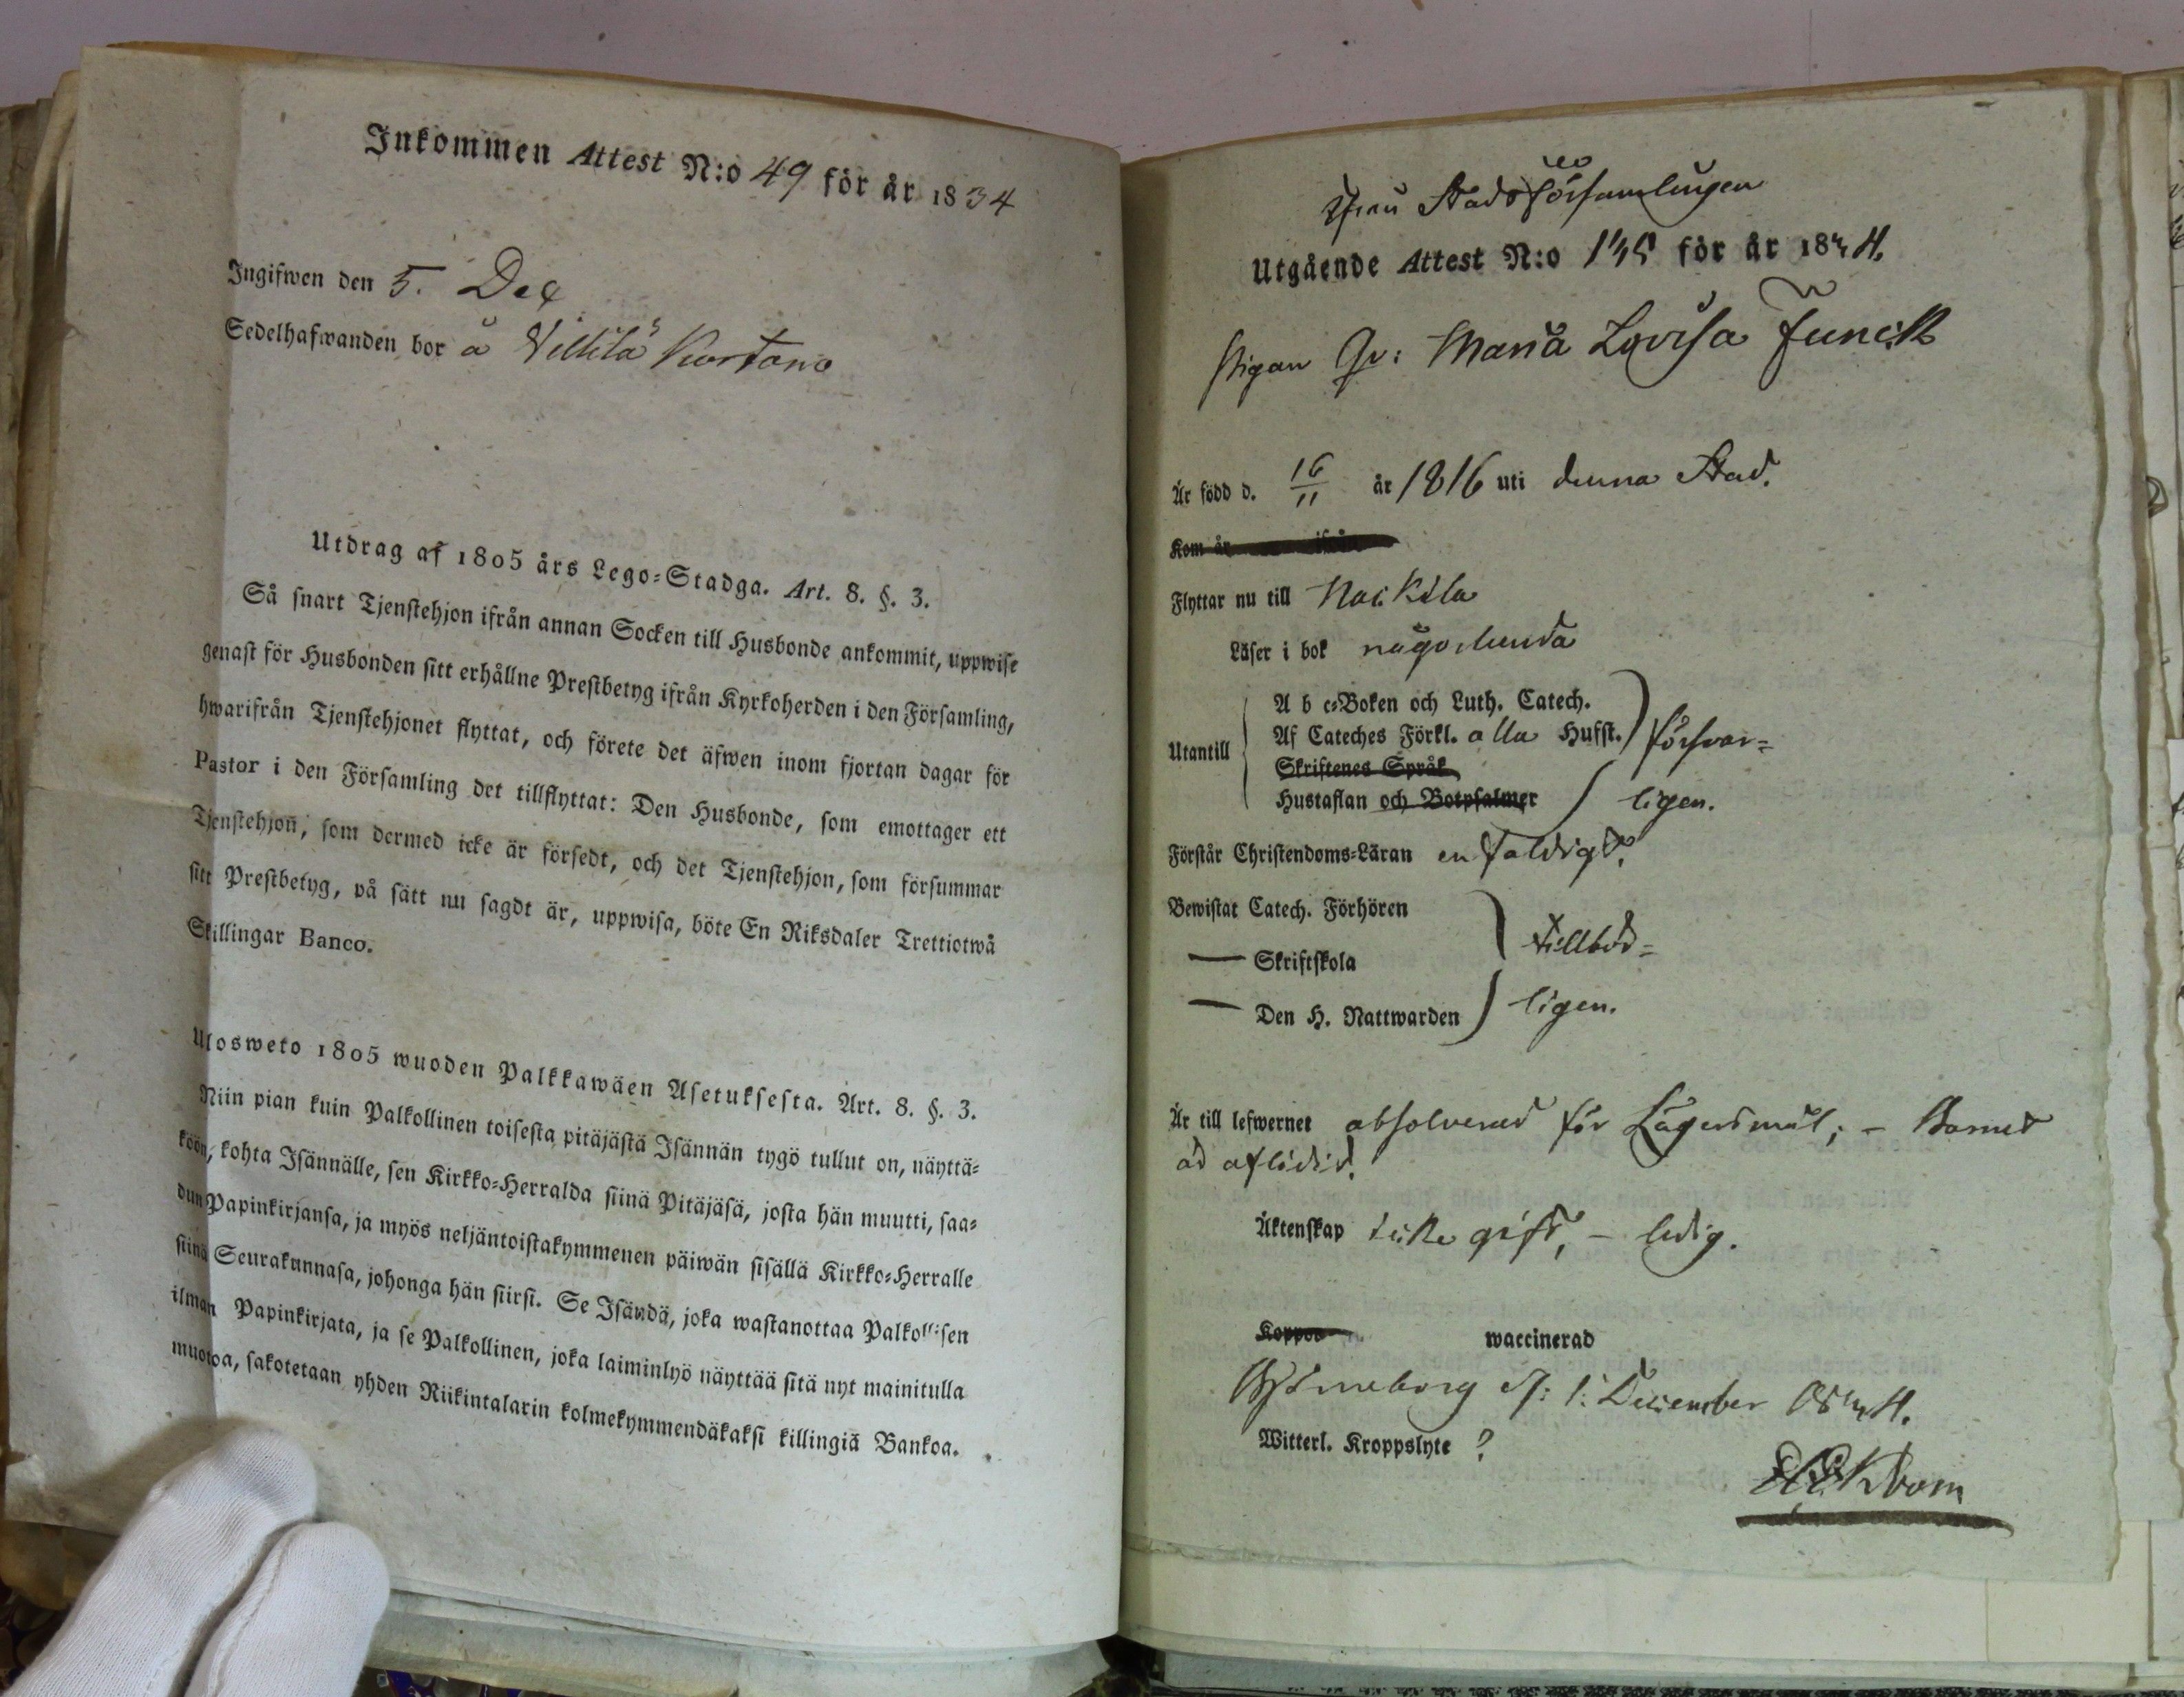 Inkommen Attest N:o 49 för år 1834
Ingifwen den 5. Dec
Sedelhafwanden bor å Villilä Kartano
Utdrag af 1805 års Lego=Stadga. Art. 8. §. 3.
Så snart Tjenstehjon ifrån annan Socken till Husbonde ankommit, uppwise
genast för Husbonden sitt erhållne Prestbetyg ifrån Kyrkoherden i den Församling,
hwarifrån Tjenstehjonet flyttat, och förete det äfwen inom fjortan dagar för
Pastor i den Församling det tillflyttat: Den Husbonde, som emottager ett
Tjenstehjon, som dermed icke är försedt, och det Tjenstehjon, som försummar
sitt Prestbetyg, på sätt nu sagdt är, uppwisa, böte En Riksdaler Trettiotwå
Skillingar Banco.
Ulosweto 1805 wuoden Palkkawäen Asetuksesta. Art. 8. §. 3.
Niin pian kuin Palkollinen toisesta pitäjästä Isännän tygö tullut on, näyttä=
köön, kohta Isännälle, sen Kirkko=Herralda siinä Pitäjäsä, josta hän muutti, saa=
dun Papinkirjansa, ja myös neljäntoistakymmenen päiwän sisällä Kirkko=Herralle
siinä Seurakunnasa, johonga hän siirsi. Se Isändä, joka wastanottaa Palkollisen
ilman Papinkirjata, ja se Palkollinen, joka laiminlyö näyttää sitä nyt mainitulla
muotoa, sakotetaan yhden Riikintalarin kolmekymmendäkaksi killingiä Bankoa.
Från Stadsförsamlingen
Utgående Attest N:o 145 för år 1834.
Pigan Qv: Maria Lovisa Funck
Är född d. 16/11 år 1816 uti denna Stad.
Kom år ifrån
Flyttar nu till Nackila
Läser i bok någorlunda
A b c=Boken och Luth. Catech.
Utantill Af Cateches Förkl. alla Hufst. försvar=
Skriftenes Språk
Hustaflan och Botpsalmer ligen.
Förstår Christendoms=Läran enfaldigt.
Bewistat Catech. Förhören
— Skriftskola tillbör=
— Den H. Nattwarden ligen.
Är till lefwernet absolverad för Lägersmål; – Barnet
är aflidit.
Äktenskap icke gift, – ledig.
Koppor waccinerad
Björneborg d: 1: December 1834.
Witterl. Kroppslyte ?